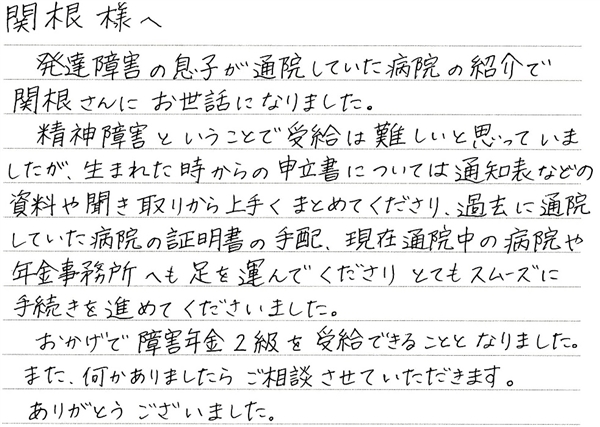 関根様へ
発達障害の息子が通院していた病院の紹介で
関根さんにお世話になりました。
精神障害ということで受給は難しいと思っていま
したが、生まれた時からの申立書については通知表などの
資料や聞き取りから上手くまとめてくださり、過去に通院
していた病院の証明書の手配、現在通院中の病院や
年金事務所へも足を運んでくださりとてもスムーズに
手続きを進めてくださいました。
おかげで障害年金2級を受給できることとなりました。
また、何かありましたらご相談させていただきます。
ありがとうございました。